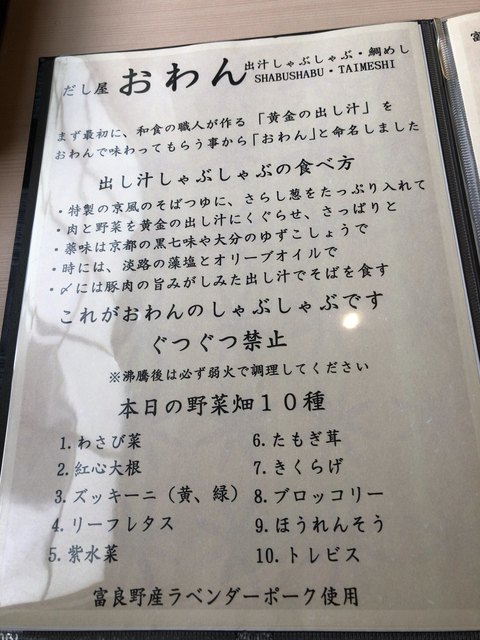 だし屋 おわん 出汁しゃぶしゃぶ・鯛めし
SHABUSHABU・TAIMESHI
まず最初に、和食の職人が作る「黄金の出し汁」を
おわんで味わってもらう事から「おわん」と命名しました
出し汁しゃぶしゃぶの食べ方
・特製の京風のそばつゆに、さらし葱をたっぷり入れて
・肉と野菜を黄金の出し汁にくぐらせ、さっぱりと
・薬味は京都の黒七味や大分のゆずこしょうで
・時には、淡路の藻塩とオリーブオイルで
・〆には豚肉の旨みがしみた出し汁でそばを食す
これがおわんのしゃぶしゃぶです
ぐつぐつ禁止
※沸騰後は必ず弱火で調理してください
本日の野菜畑10種
1.わさび菜
2.紅心大根
3.ズッキーニ(黄、緑)
4.リーフレタス
5.紫水菜
6.たもぎ茸
7.きくらげ
8.ブロッコリー
9.ほうれんそう
10.トレビス
富良野産ラベンダーポーク使用